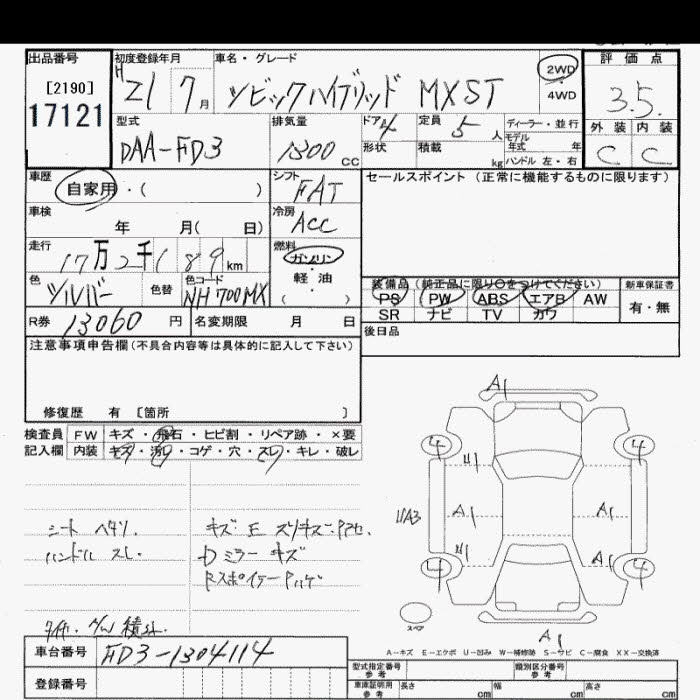 出品番号 初度登録年月 車名・グレード 評価点
[2190] H 21 7月 シビックハイブリッド MXST 2WD 3.5
17121 4WD 外装 内装
型式 排気量 ドア 4 定員 5人 ディーラー・並行 C C
DAA-FD3 1300cc 形状 積載 kg モデル年式 年 ハンドル 左・右
車歴 シフト セールスポイント(正常に機能するものに限ります)
自家用・( ) FAT
車検 冷房
年 月( 日) ACC
走行 燃料
17万2千189km ガソリン・軽油
色 色替 色コード ( )
シルバー NH700MX
装備品(純正品に限り○をつけてください) 新車保証書
PS PW ABS エアB AW 有・無
SR ナビ TV カワ
R券 13060円 名変期限 月 日 後日品
注意事項申告欄(不具合内容等は具体的に記入して下さい)
修復歴 有 [箇所 ]
検査員 FW キズ・飛石・ヒビ割・リペア跡・×要
記入欄 内装 キズ・汚れ・コゲ・穴・スレ・キレ・破レ
A1
4 4
U1
シート ヘタリ キズ・E スリキズ・
UA3 A1 A1
ハンドル スレ Dミラー キズ
U1 A1
4 4
Rスポイラー Pハゲ
スペア
積込
A1
A-キズ E-エクボ U-凹み W-補修跡 S-サビ C-腐食 XX-交換済
車台番号 FD3-1304114
登録番号
型式指定番号 参考 類別区分番号 参考
車庫証明用 参考 長さ cm 幅 cm 高さ cm